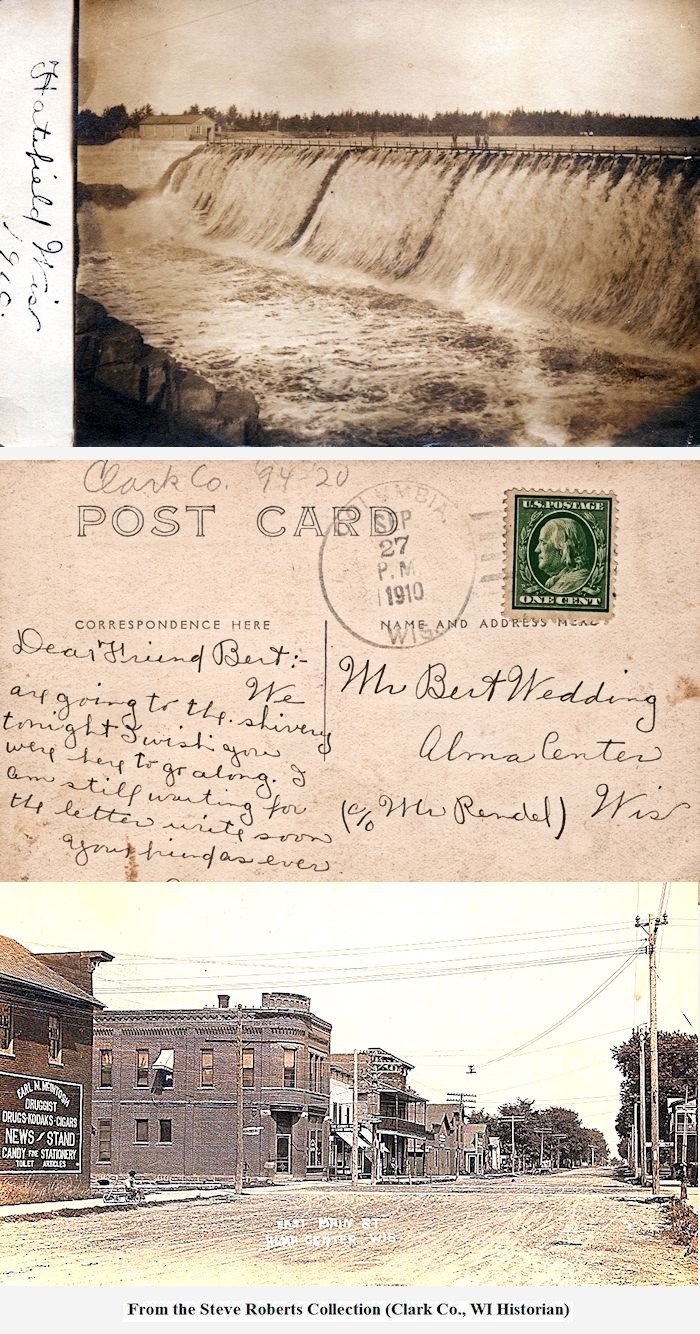 Hatfield Wis
1910.
Clark Co. 94-20
POST CARD
COLUMBIA
SEP
27
P.M
1910
WIS.
U.S. POSTAGE
ONE CENT
CORRESPONDENCE HERE
NAME AND ADDRESS HERE
Dear Friend Bert:-
We
are going to the shivery
tonight I wish you
were here to go along. I
am still waiting for
the letter write soon
Your friend as ever
Mr Bert Wedding
Alma Center
(c/o Mr Rendel) Wis
EARL M. MCINTOSH
DRUGGIST
DRUGS-KODAKS-CIGARS
NEWS STAND
CANDY FINE STATIONERY
TOILET ARTICLES
EAST MAIN ST.
ALMA CENTER WIS.
From the Steve Roberts Collection (Clark Co., WI Historian)